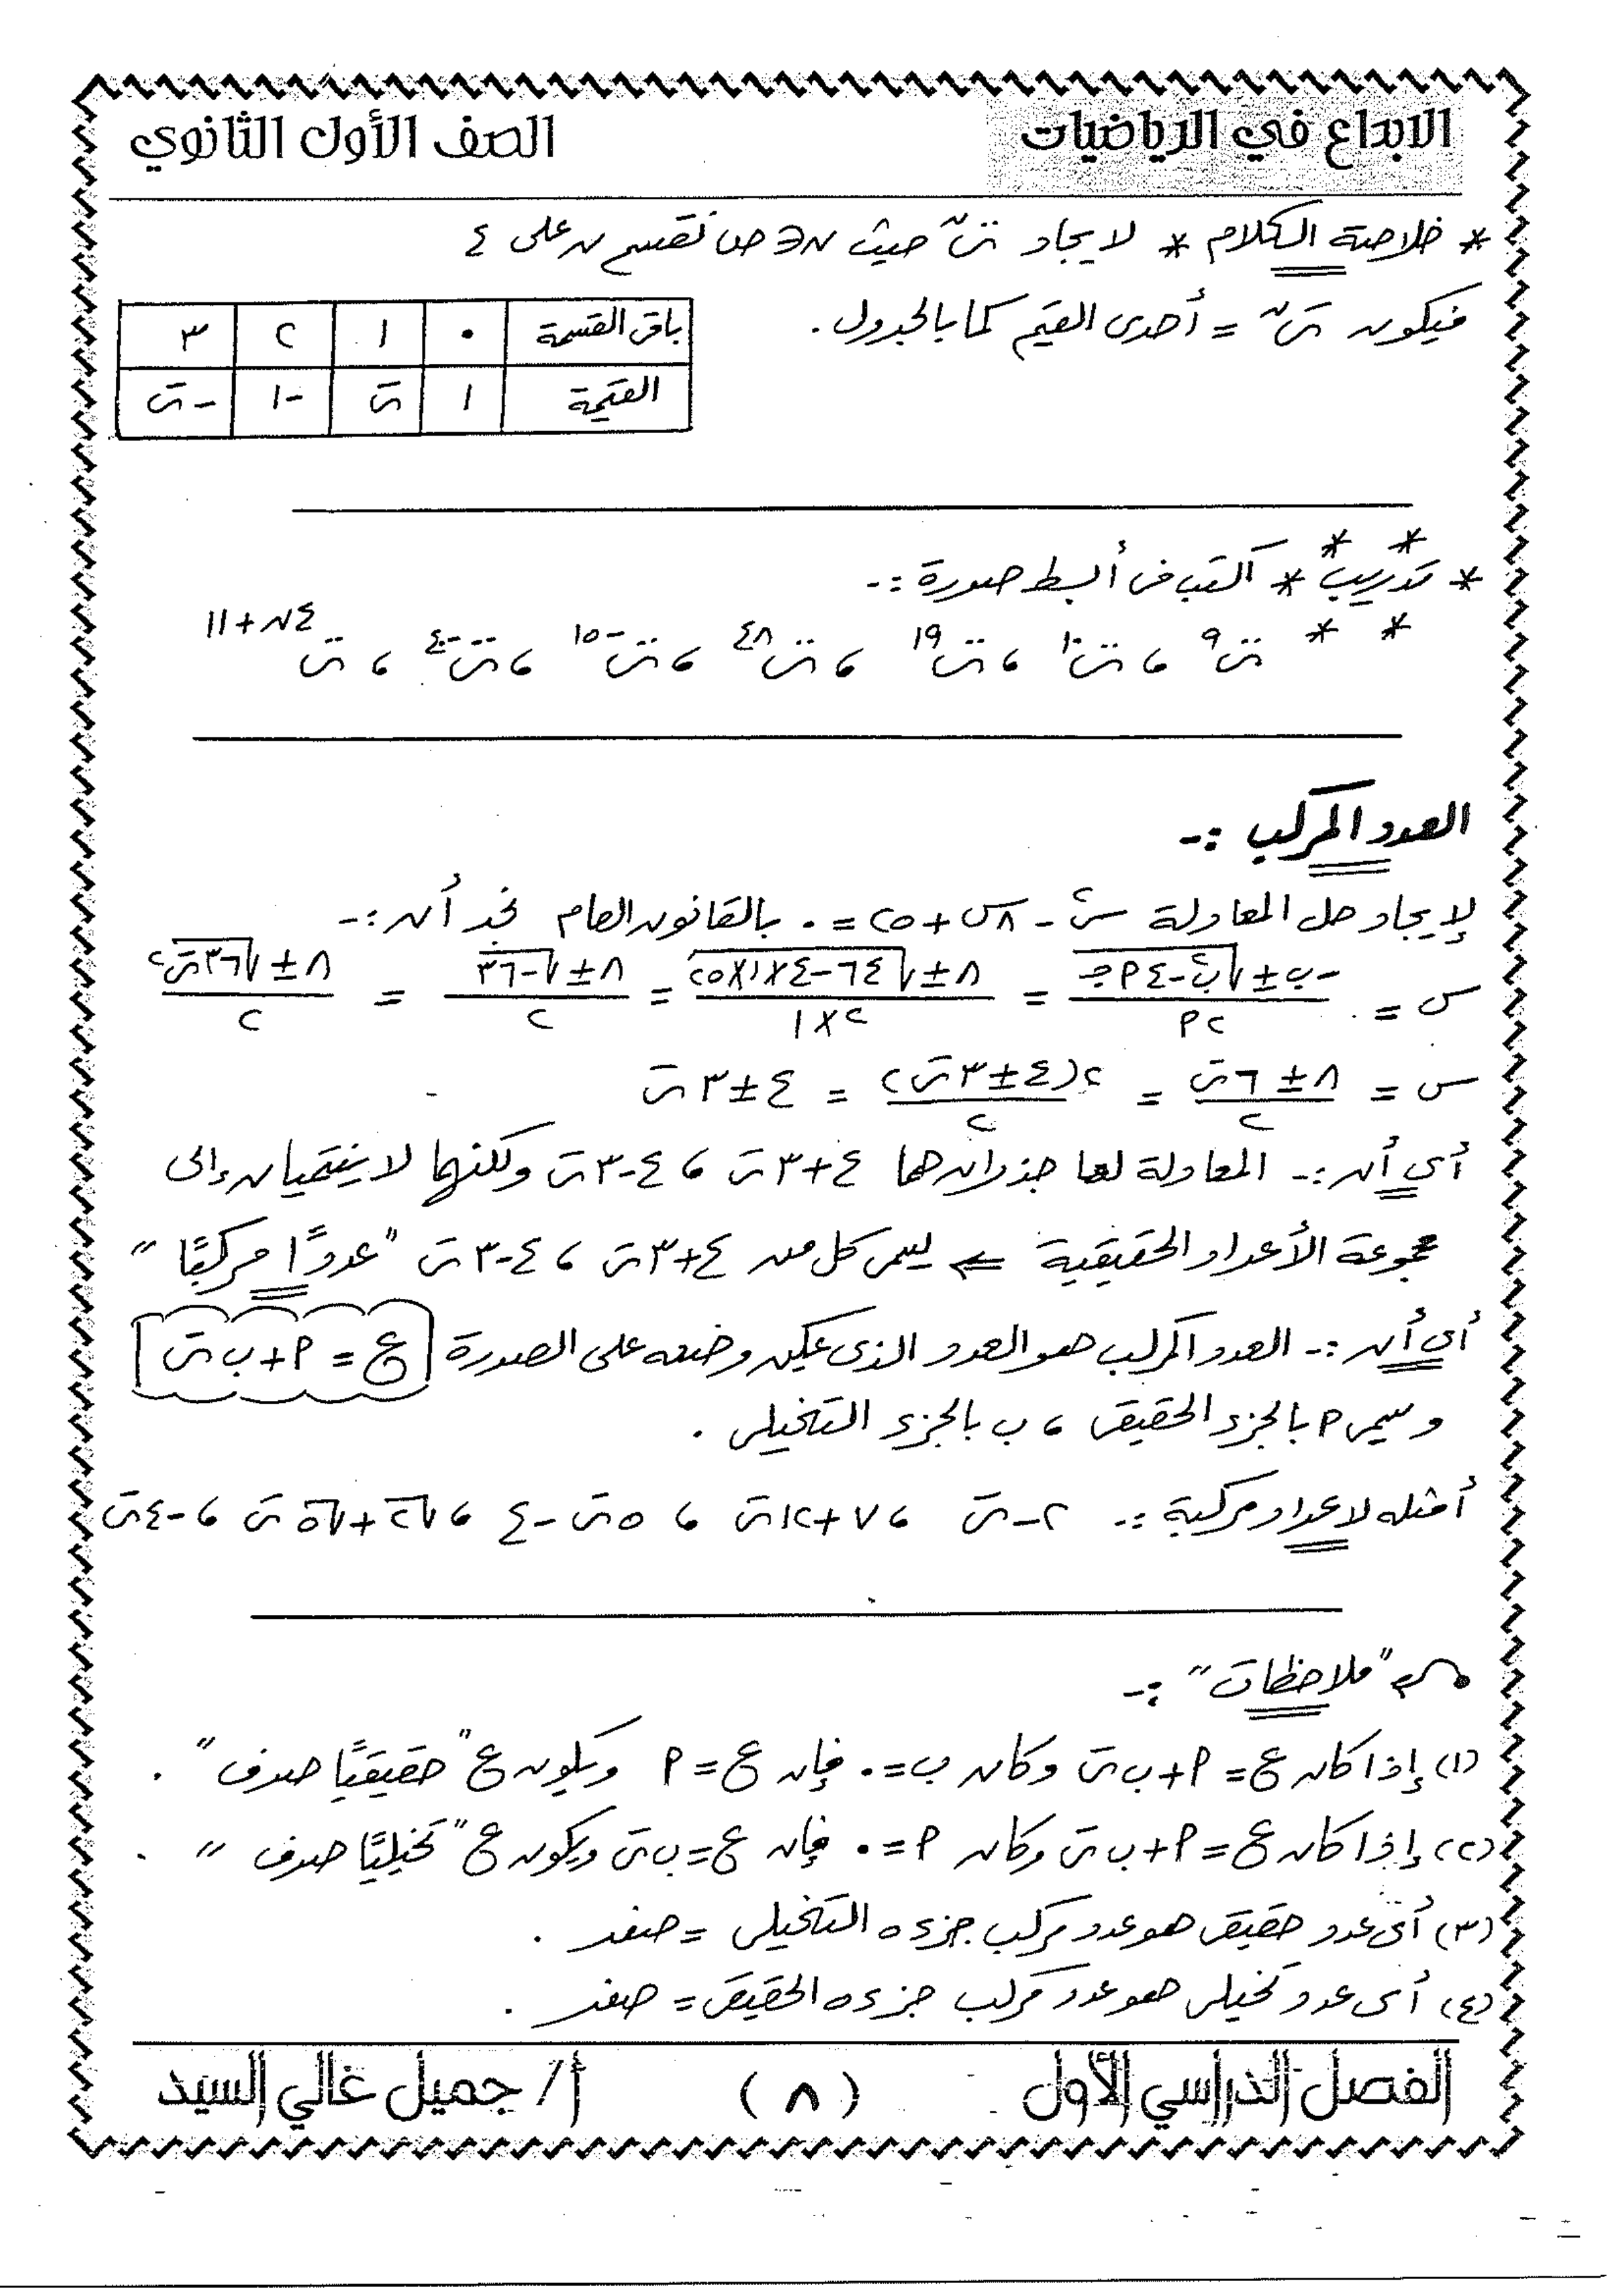 الابداع في الرياضيات
الصف الأول الثانوي
* خلاصة الكلام * لايجاد ت^ن حيث ن ∈ ص نقسم ن على ٤
فيكون ت^ن = أحدى القيم كما بالجدول .
باقى القسمة ٠ ١ ٢ ٣
القيمة ١ ت -١ -ت
* تدريب * اكتب فى أبسط صورة :-
ت^٩ ، ت^١٠ ، ت^١٩ ، ت^٤٨ ، ت^-١٥ ، ت^-٤٠ ، ت^٤ن+١١
العدد المركب :-
لإيجاد حل المعادلة س^٢ - ٨س + ٢٥ = ٠ بالقانون العام نجد أن :-
س = (-ب ± √(ب^٢ - ٤أجـ)) / ٢أ = (٨ ± √(٦٤ - ٤×١×٢٥)) / ٢×١ = (٨ ± √-٣٦) / ٢ = (٨ ± √٣٦ت^٢) / ٢
س = (٨ ± ٦ت) / ٢ = ٢(٤ ± ٣ت) / ٢ = ٤ ± ٣ت
أى أن :- المعادلة لها جذران هما ٤+٣ت ، ٤-٣ت ولكنهما لا ينتميان إلى
مجموعة الأعداد الحقيقية ⇐ يسمى كل من ٤+٣ت ، ٤-٣ت "عددًا مركبًا"
أى أن :- العدد المركب هو العدد الذى يمكن وضعه على الصورة ع = أ + ب ت
ويسمى أ بالجزء الحقيقى ، ب بالجزء التخيلى .
أمثله لاعداد مركبة :- ٢-ت ، ٧+١٢ت ، ٥ت-٤ ، √٢+√٥ ت ، -٤ت
"ملاحظات" :-
(١) إذا كان ع = أ + ب ت وكان ب = ٠ فإن ع = أ ويكون ع "حقيقيًا صرف" .
(٢) إذا كان ع = أ + ب ت وكان أ = ٠ فإن ع = ب ت ويكون ع "تخيليًا صرف" .
(٣) أى عدد حقيقى هو عدد مركب جزءه التخيلى = صفر .
(٤) أى عدد تخيلى هو عدد مركب جزءه الحقيقى = صفر .
الفصل الدراسي الأول
( ٨ )
أ/ جميل غالي السيد